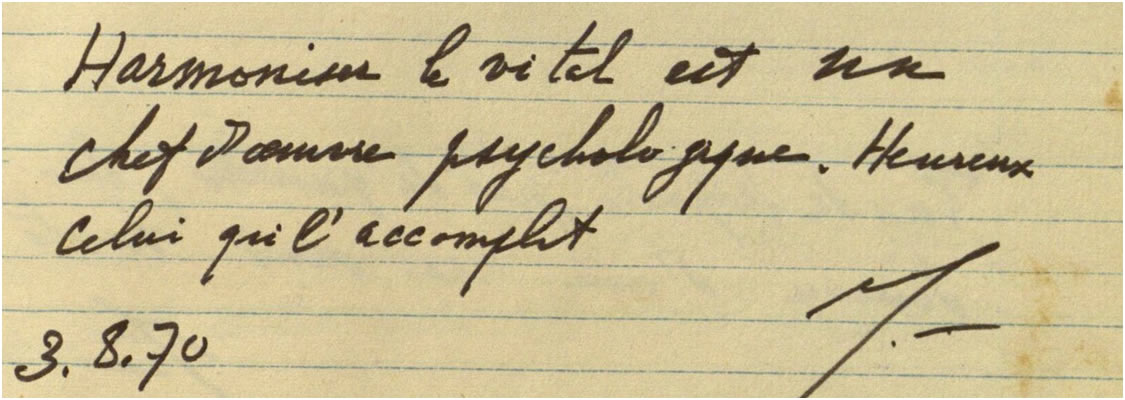 Harmoniser le vital est un
chef d'œuvre psychologique. Heureux
celui qui l'accomplit
3.8.70